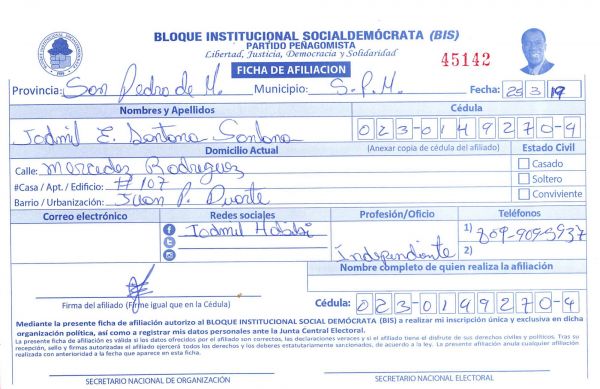 BLOQUE INSTITUCIONAL SOCIALDEMÓCRATA (BIS)
PARTIDO PEÑAGOMISTA
Libertad, Justicia, Democracia y Solidaridad
FICHA DE AFILIACION
45142
Provincia: San Pedro de M. Municipio: S.P.M. Fecha: 25 3 19
Nombres y Apellidos Cédula
Jadmil E. Santana Santana 023-0149270-4
Domicilio Actual (Anexar copia de cédula del afiliado) Estado Civil
Calle: Mercedez Rodriguez Casado
#Casa / Apt. / Edificio: # 107 Soltero
Barrio / Urbanización: Juan P. Duarte Conviviente
Correo electrónico Redes sociales Profesión/Oficio Teléfonos
Jadmil Habibi Independiente 1) 809-909-5937
2)
Nombre completo de quien realiza la afiliación
Firma del afiliado (Firme igual que en la Cédula) Cédula: 023-0149270-4
Mediante la presente ficha de afiliación autorizo al BLOQUE INSTITUCIONAL SOCIAL DEMÓCRATA (BIS) a realizar mi inscripción única y exclusiva en dicha
organización política, así como a registrar mis datos personales ante la Junta Central Electoral.
La presente ficha de afiliación es válida si los datos ofrecidos por el afiliado son correctos, las declaraciones veraces y si el afiliado tiene el disfrute de sus derechos civiles y políticos. Tras su
recepción, sello y firmas autorizadas el afiliado ejercerá todos los derechos y los deberes estatutariamente sancionados, de acuerdo a la ley. La presente afiliación anula cualquier afiliación
realizada con anterioridad a la fecha que aparece en esta ficha.
SECRETARIO NACIONAL DE ORGANIZACIÓN SECRETARIO NACIONAL ELECTORAL